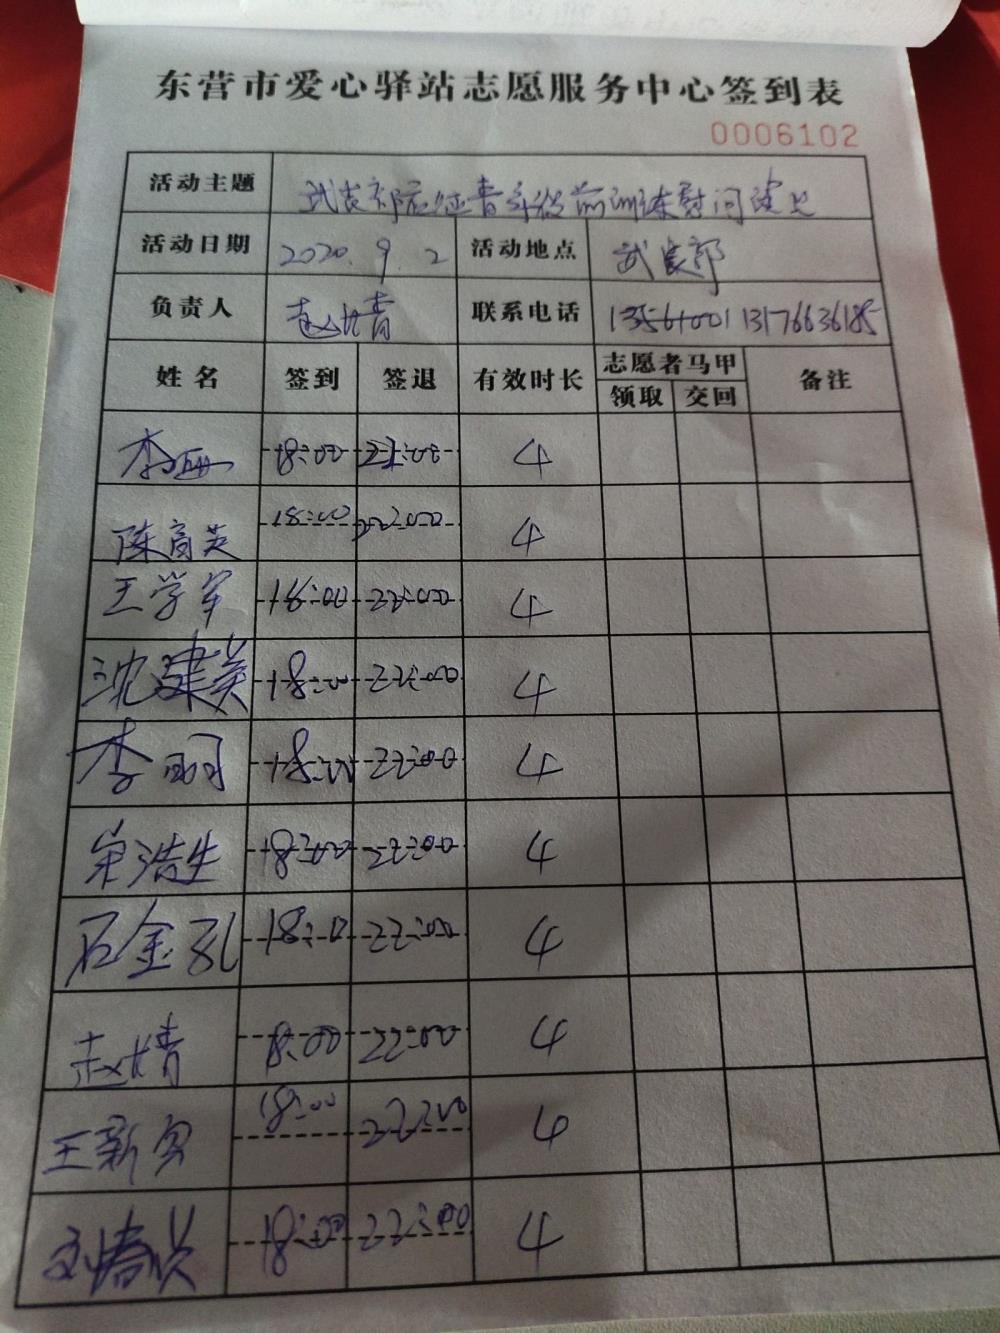 东营市爱心驿站志愿服务中心签到表
0006102
活动主题 武装部应征青年役前训练慰问演出
活动日期 2020.9.2 活动地点 武装部
负责人 赵婧 联系电话 13176636185
姓名 签到 签退 有效时长 志愿者马甲 备注
领取 交回
李 18:00 22:00 4
陈育英 18:00 22:00 4
王学军 18:00 22:00 4
沈建英 18:00 22:00 4
李明 18:00 22:00 4
宋浩生 18:00 22:00 4
石金孔 18:00 22:00 4
赵婧 18:00 22:00 4
王新 18:00 22:00 4
刘春 18:00 22:00 4